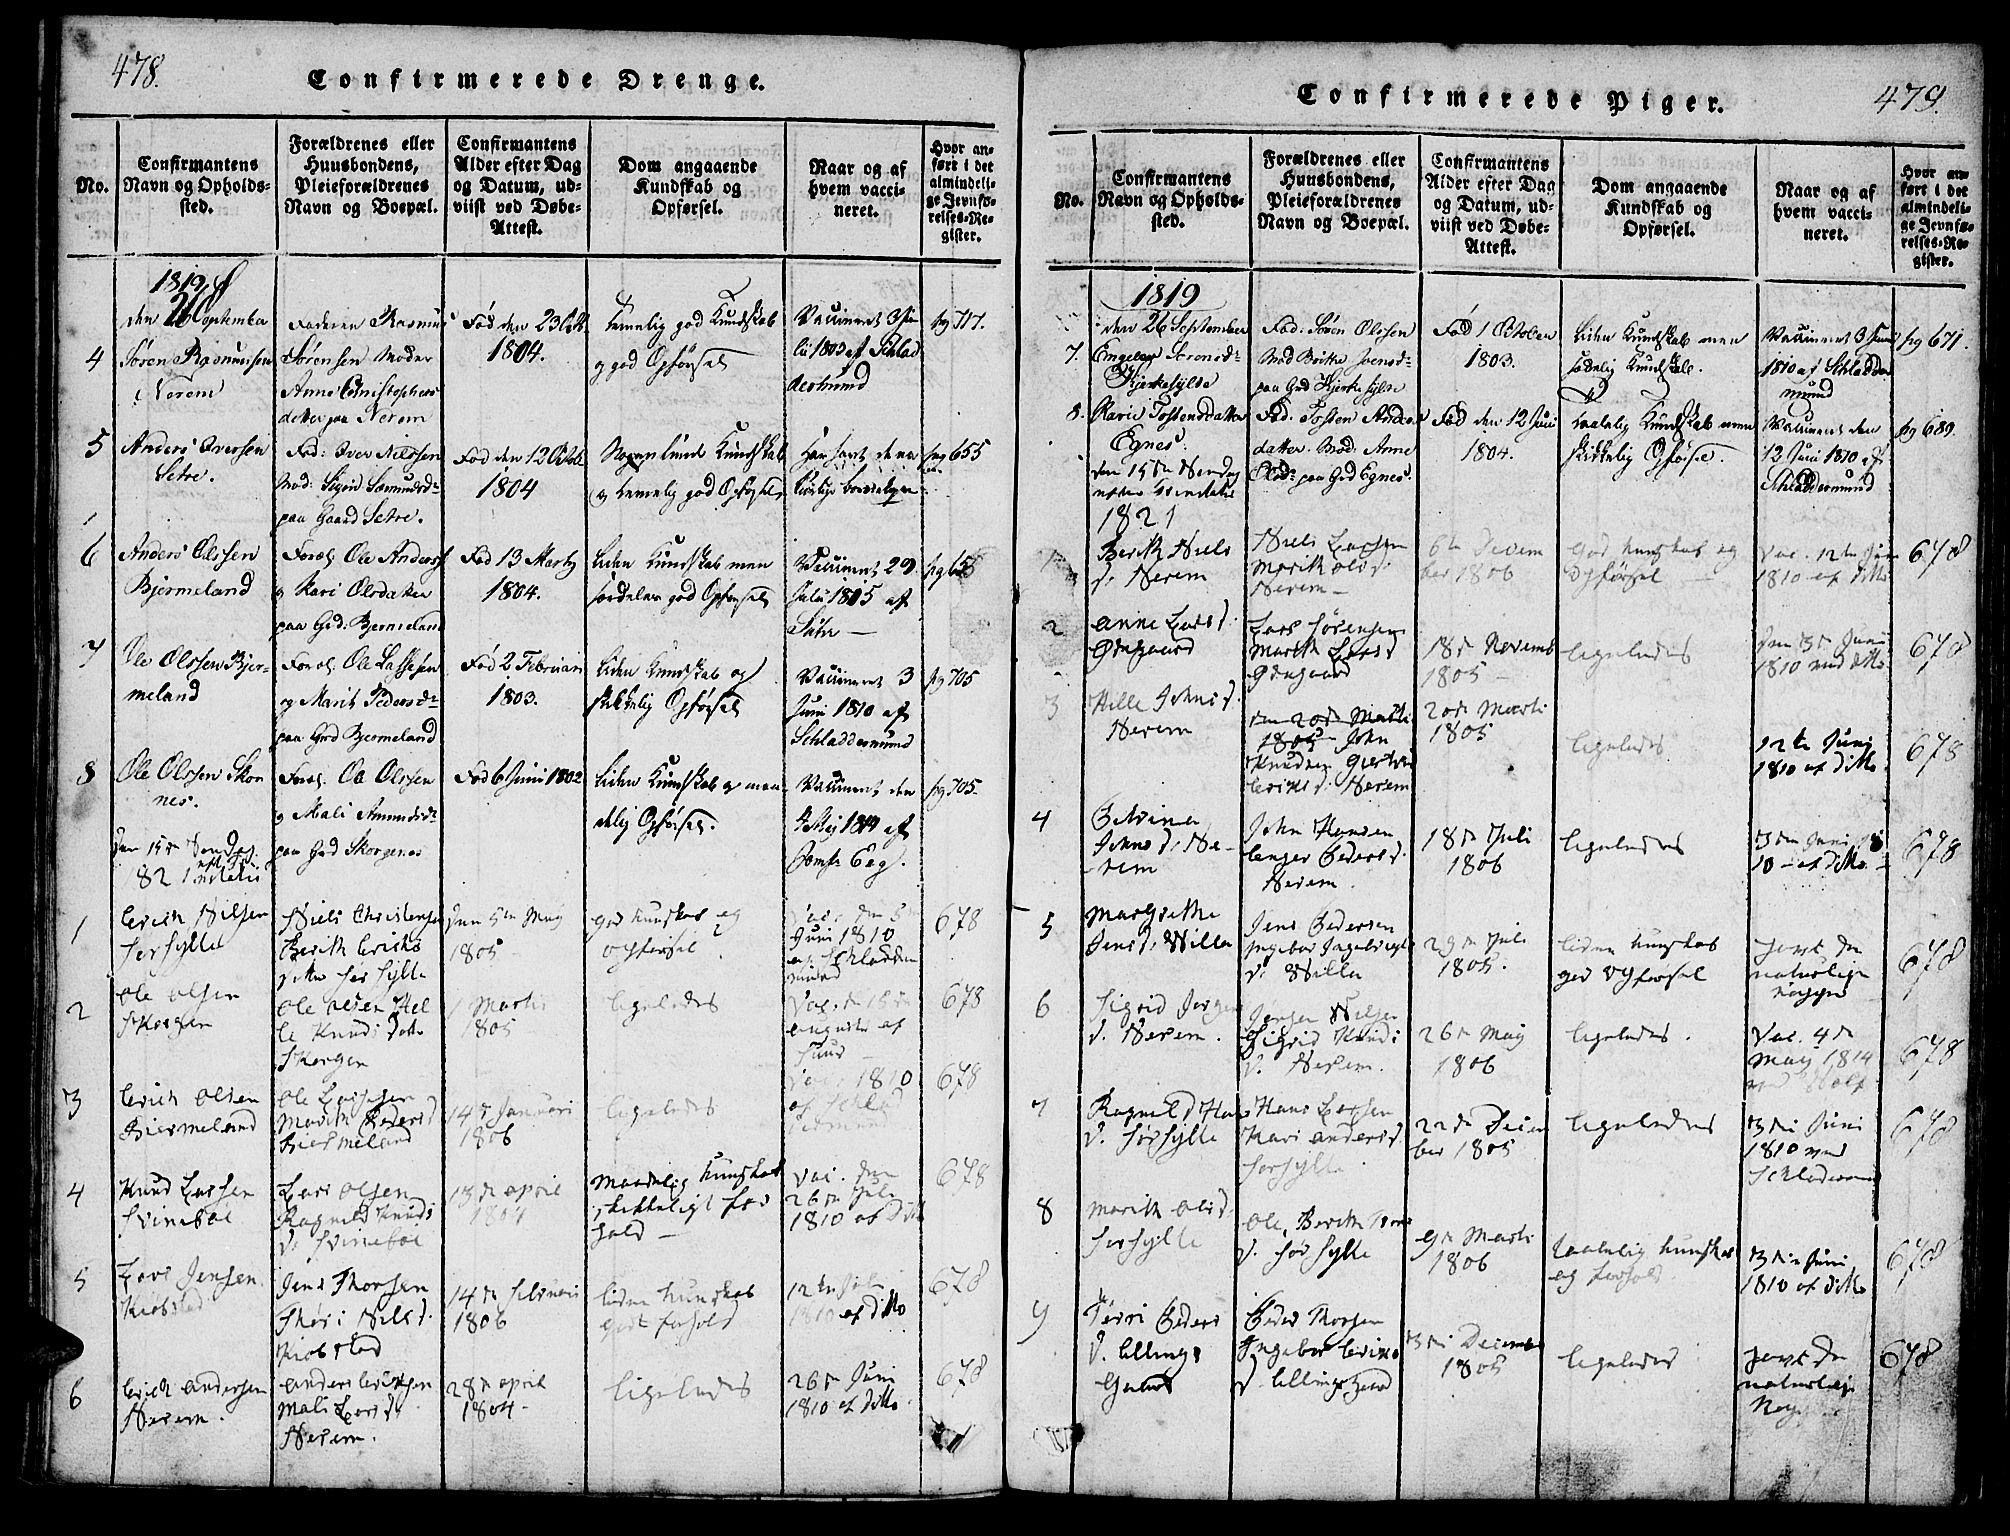 478.
Confirmerede Drenge.
No.
Confirmantens
Navn og Opholds-
sted.
Forældrenes eller
Huusbondens,
Pleieforældrenes
Navn og Boepæl.
Confirmantens
Alder efter Dag
og Datum, ud-
viist ved Døbe-
Attest.
Dom angaaende
Kundskab og
Opførsel.
Naar og af
hvem vacci-
neret.
Hvor an-
ført i det
almindeli-
ge Jevnfø-
relses-Re-
gister.
1819
den 26 September
4 Søren Rasmussen
Nerem
Faderen Rasmus
Sørensen Moder
Anne Christophers
datter paa Nerem
Fød den 23 Octb
1804.
temelig god Kundskab
og god Opførsel
Vaccineret 3 Ju
af Schlad
dermund
pg 717.
5 Anders Iversen
Setre.
Fad: Iver Nilssen
Mod: Sigrid
paa Gaard Setre.
Fød den 12 Octb
1804
Kundskab
og temelig god Opførsel
Har havt de na
turlige
pg 655
6 Anders Olssen
Bjermeland
Foræl. Ole Anders
og Kari Olsdatter
paa Grd: Bjermeland
Fød 13 Marty
1804.
Liden Kundskab men
god Opførsel
Vaccineret 29
Julii 1815 af
pg 655
7 Ole Olssen Bjer-
meland
Foræl. Ole Lassesen
og Marit Pedersdr
paa Grd Bjermeland
Fød 2 Februari
1803.
Liden Kundskab og
skikkelig Opførsel
Vaccineret 3
Juni 1810 af
Schladdermund
pg 705
8 Ole Olssen Skor
nes.
Foræl. Ole Olssen
og Mali Amundsdr
paa Grd Skorgenes
Fød 6 Juni 1802
Liden Kundskab og maa-
delig Opførsel.
Vaccineret den
4 Mej 1819 af
Eeg.
pg 705.
Den 15de Søndag
1821
1 Erich Nilsen
Sørsylte
Niels Christensen
Berith Eriks
datter Sør Sylte
Den 5te May
1805
god kunskab og
opførsel
Vac. den 5te
Juni 1810
af Schladder
mund
678
2 Ole Olsen
Skorgen
Ole Olsen Hel
le Knuds datter
Skorgen
1 Martii
1805
ligeledes
Vac. den 15de
augusti af
678
3 Erich Olsen
Biermeland
Ole Lassesen
Marith Peders d
Biermeland
14de Januari
1806
ligeledes
Vac. 1810
af Schlad
dermund
678
4 Knud Larsen
Svinebøe
Lars Olsen
Ragnild Knuds
d. Svinebøe
13de april
1804
Maadelig kunskab
skikkeligt for
hold
Vac. den
26de Juli
1810 af ditto
678
5 Lars Jensen
Kiøbstad
Jens Thorsen
Thøri Nils d.
Kiøbstad
14de Februari
1806
liden kunskab
godt forhold
12te Juli
1810 af ditto
678
6 Erich Andersen
Nerem.
Anders Erichsen
Mali Lars d.
Nerem.
28de april
1804
ligeledes
26de Juni
1810 af ditto.
678
Confirmerede Piger.
479.
No.
Confirmantens
Navn og Opholds-
sted.
Forældrenes eller
Huusbondens,
Pleieforældrenes
Navn og Boepæl.
Confirmantens
Alder efter Dag
og Datum, ud-
viist ved Døbe-
Attest.
Dom angaaende
Kundskab og
Opførsel.
Naar og af
hvem vacci-
neret.
Hvor an-
ført i det
almindeli-
ge Jevnfø-
relses-Re-
gister.
1819
den 26 September
7. Sørensdr
Kjerkesylte
Fad: Søren Olssen
Mod Berthe Iversdr
paa Grd Kjerkesylte
Fød 1 October
1803.
Liden Kundskab men
Vaccineret 3 Juni
1810 af Schladder
mund
pg 671.
8. Karie Tostensdatter
Egnes.
Fad: Tosten Anders
Mod. Anne
Olsdr paa Grd Egnes.
Fød den 12 Juni
1804.
taalelig Kundskab men
skikkelig Opførsel.
Vaccineret den
12 Juni 1810 af
Schladdermund
pg 689.
den 15de Søndag
efter Trinitatis
1821
1 Berith Niels
d. Nerem
Niels Larsen
Marith Ols d.
Nerem
6te Decem
ber 1806
God kunskab og
opførsel
Vac. 12te Juni
1810 af ditto
678
2 Anne Lars d.
Ødegaard
Lars Sørensen
Marith Lars d
Ødegaard
18de Novemb
1805
ligeledes
Den 3de Juni
1810 ved ditto
678
3 Hille Johns d.
Nerem
den 20de Marti
1805 John
Knudsen
Eriks d. Nerem
20de Marti
1805
ligeledes
12te Juni
1810 af ditto.
678
4
Johns d. Ne-
rem
John Hansen
Peders d.
Nerem.
18de Juli
1806
ligeledes
3de Juni 18
10 af ditto
678
5 Margrethe
Jens d. Villa
Jens Pedersen
Ingebor Ingebrigt
d. Villa
29de Juli
1805.
liden kunskab
god opførsel
havt de
naturlige
kopper
678
6 Sigrid Jørgen
d. Nerem.
Jørgen Nilsen
Sigrid Knuds
d. Nerem.
26de May
1806
ligeledes.
Vac. 4de
May 1814
ved
678
7 Ragnild Hans
d. Sørsylte
Hans Larsen
Kari Anders d.
Sørsylte
22de Decem
ber 1805
ligeledes
3die Juni
1810 ved
678
8 Marith Ols d
Sørsylte
Ole, Berith
d. Sør Sylte
9de Marti
1806
taalelig kunskab
og forhold.
3die Juni
1810 af ditto
678
9 Peders
d.
Peder Thorsen
Ingebor
d.
3die December
1805
ligeledes
havt de
naturlige
678